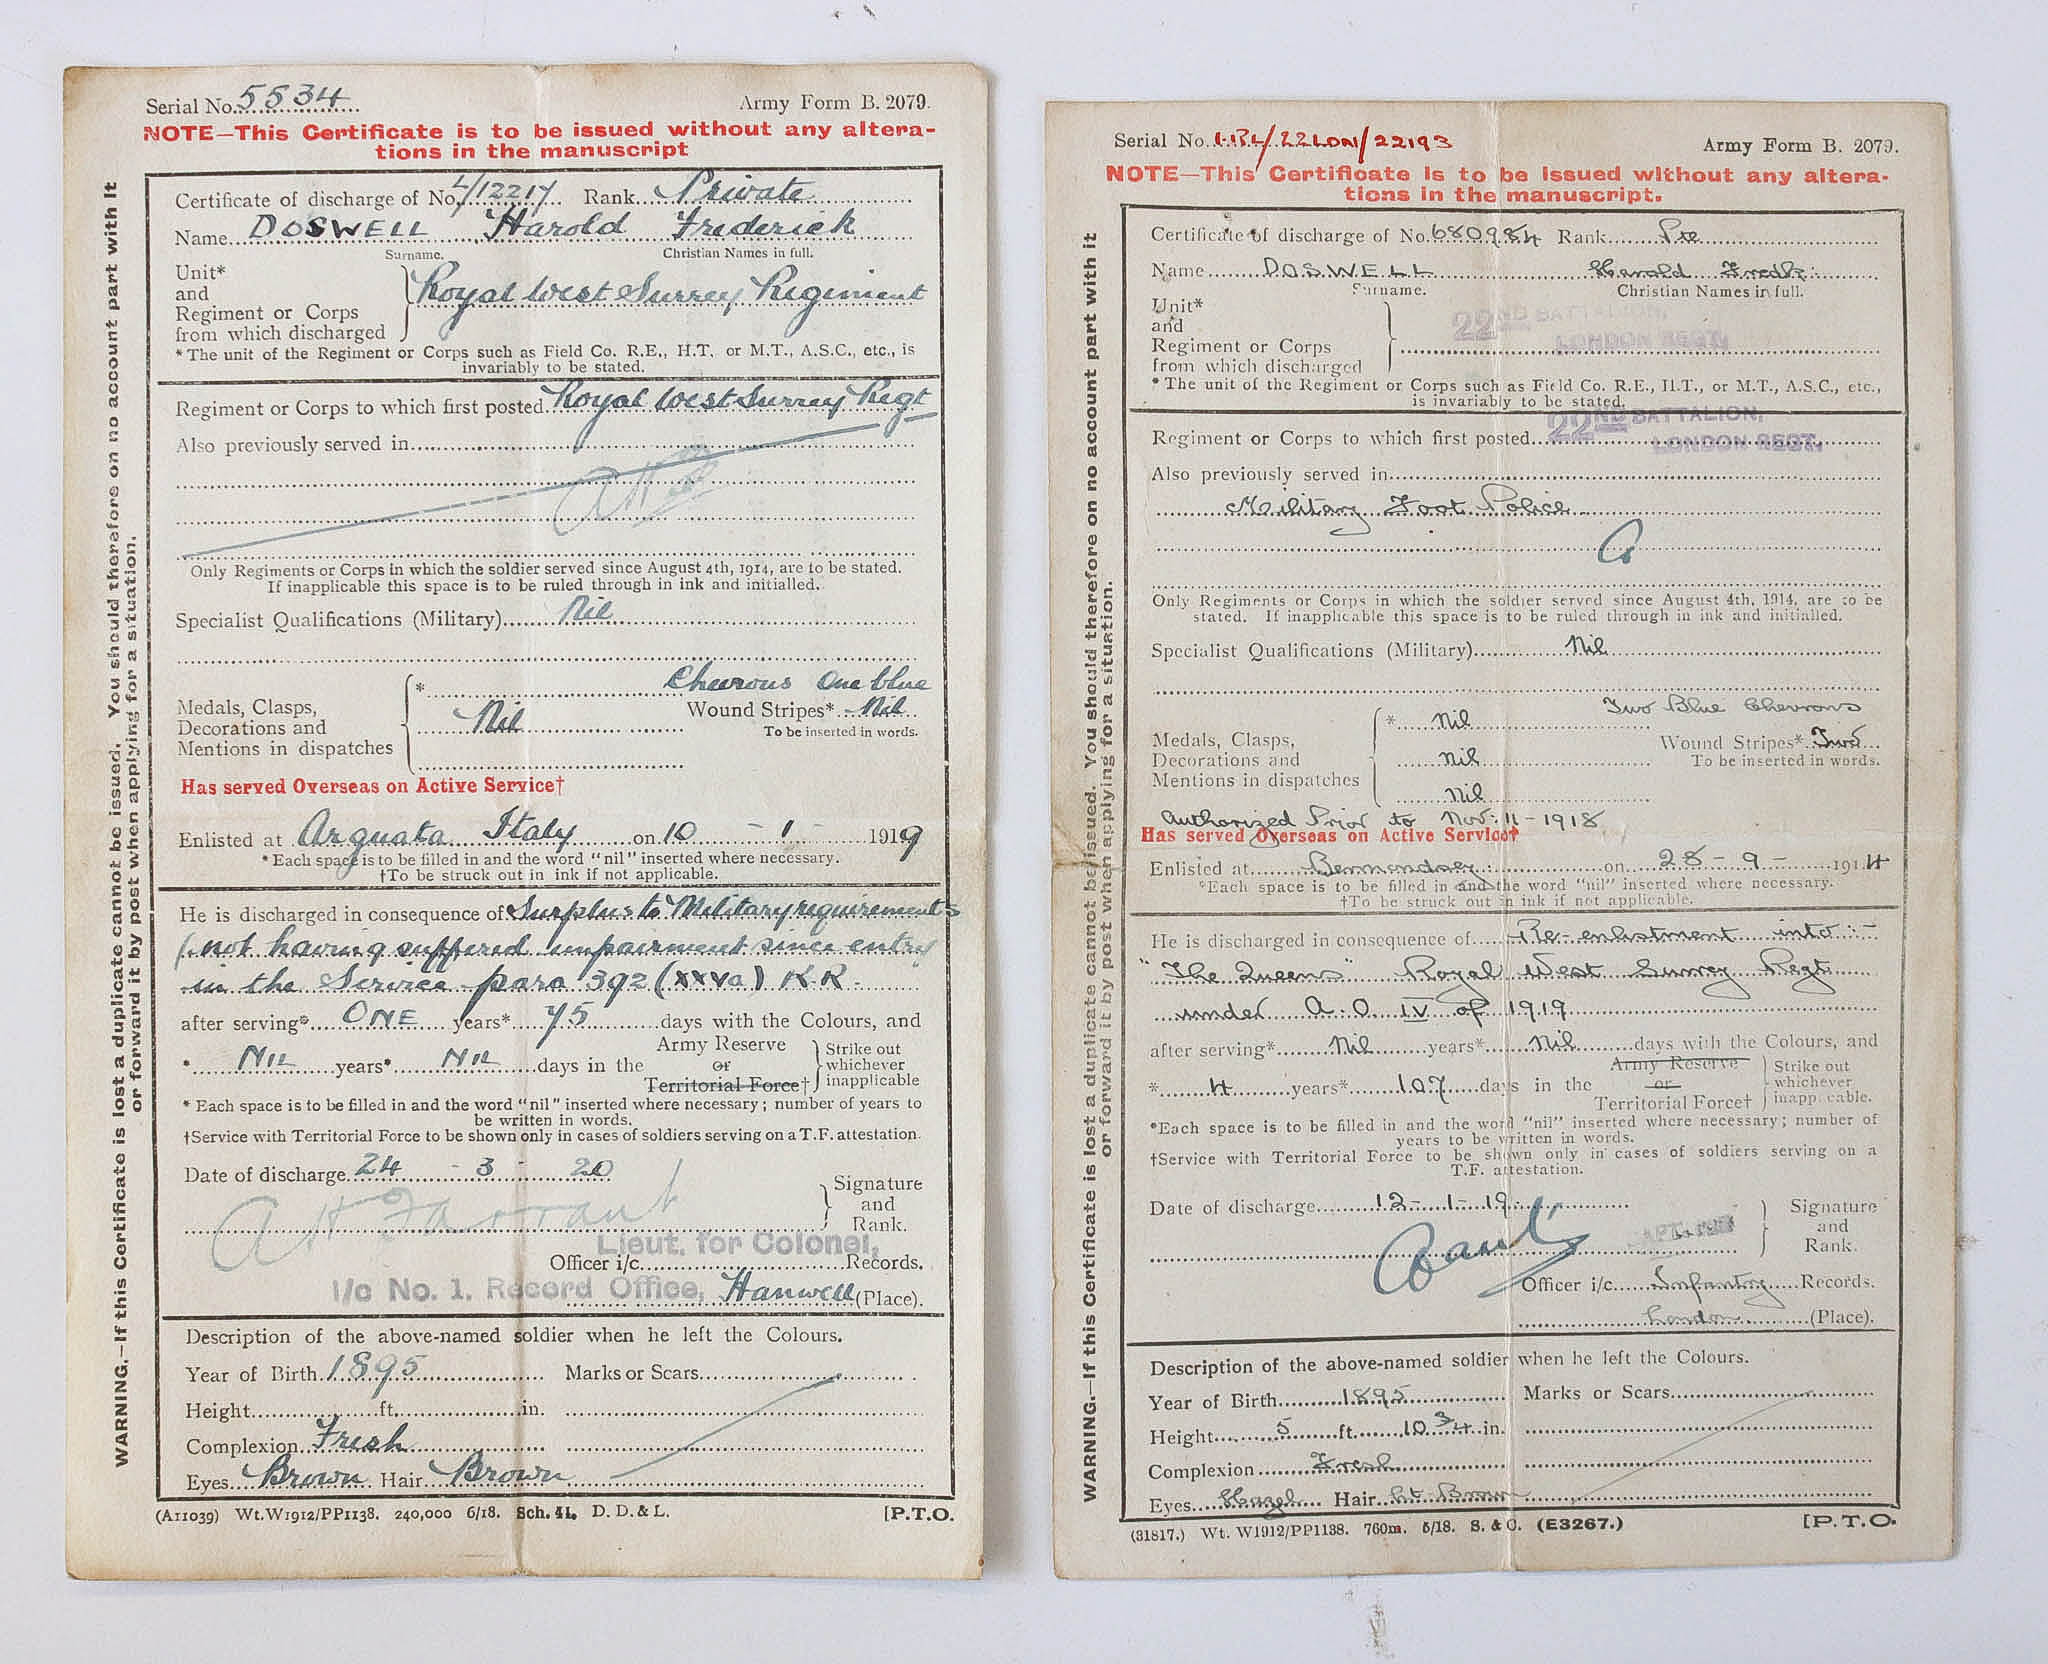 Serial No. 5534
Army Form B. 2079.
NOTE—This Certificate is to be issued without any altera-
tions in the manuscript
Certificate of discharge of No. L/12217 Rank Private
Name DOSWELL Harold Frederick
Surname. Christian Names in full.
Unit*
and
Regiment or Corps
from which discharged
Royal West Surrey Regiment
*The unit of the Regiment or Corps such as Field Co. R.E., H.T. or M.T., A.S.C., etc., is
invariably to be stated.
Regiment or Corps to which first posted Royal West Surrey Regt
Also previously served in
Only Regiments or Corps in which the soldier served since August 4th, 1914, are to be stated.
If inapplicable this space is to be ruled through in ink and initialled.
Specialist Qualifications (Military) Nil
Chevrons One blue
Medals, Clasps,
Decorations and
Mentions in dispatches
*
Nil
Wound Stripes* Nil
To be inserted in words.
Has served Overseas on Active Service†
Enlisted at Arquata Italy on 10 - 1 - 1919
*Each space is to be filled in and the word "nil" inserted where necessary.
†To be struck out in ink if not applicable.
He is discharged in consequence of Surplus to Military requirements
(not having suffered impairment since entry
in the Service para 392 (XXVa) K.R.
after serving* ONE years* 75 days with the Colours, and
* Nil years* Nil days in the
Army Reserve
or
Territorial Force†
Strike out
whichever
inapplicable
* Each space is to be filled in and the word "nil" inserted where necessary; number of years to
be written in words.
†Service with Territorial Force to be shown only in cases of soldiers serving on a T.F. attestation.
Date of discharge 24 - 3 - 20
A H Farrant
Signature
and
Rank.
Lieut. for Colonel,
Officer i/c Records.
I/c No. 1. Record Office, Hanwell (Place).
Description of the above-named soldier when he left the Colours.
Year of Birth 1895 Marks or Scars
Height ft. in.
Complexion Fresh
Eyes Brown Hair Brown
(A11039) Wt. W1912/PP1138. 240,000 6/18. Sch. 41. D. D. & L. [P.T.O.
WARNING.—If this Certificate is lost a duplicate cannot be issued. You should therefore on no account part with it
or forward it by post when applying for a situation.
Serial No. /22LON/22193
Army Form B. 2079.
NOTE—This Certificate is to be issued without any altera-
tions in the manuscript.
Certificate of discharge of No. 680984 Rank Pte
Name DOSWELL Harold Fredk:
Surname. Christian Names in full.
Unit*
and
Regiment or Corps
from which discharged
22ND BATTALION,
LONDON REGT.
*The unit of the Regiment or Corps such as Field Co. R.E., H.T., or M.T., A.S.C., etc.,
is invariably to be stated.
Regiment or Corps to which first posted 22ND BATTALION,
LONDON REGT.
Also previously served in
Military Foot Police
Only Regiments or Corps in which the soldier served since August 4th, 1914, are to be
stated. If inapplicable this space is to be ruled through in ink and initialled.
Specialist Qualifications (Military) Nil
Two Blue Chevrons
Medals, Clasps,
Decorations and
Mentions in dispatches
* Nil
Nil
Nil
Wound Stripes* Two
To be inserted in words.
Authorized Prior to Nov: 11 - 1918
Has served Overseas on Active Service†
Enlisted at Bermondsey on 28 - 9 - 1914
*Each space is to be filled in and the word "nil" inserted where necessary.
†To be struck out in ink if not applicable.
He is discharged in consequence of Re-enlistment into :-
"The Queens" Royal West Surrey Regt
under A.O IV of 1919
after serving* Nil years* Nil days with the Colours, and
* 4 years* 107 days in the
Army Reserve
or
Territorial Force†
Strike out
whichever
inapplicable.
*Each space is to be filled in and the word "nil" inserted where necessary; number of
years to be written in words.
†Service with Territorial Force to be shown only in cases of soldiers serving on a
T.F. attestation.
Date of discharge 12-1-19
Signature
and
Rank.
Officer i/c Infantry Records.
London (Place).
Description of the above-named soldier when he left the Colours.
Year of Birth 1895 Marks or Scars
Height 5 ft. 10 3/4 in.
Complexion Fresh
Eyes Hazel Hair Lt. Brown
(31817.) Wt. W1912/PP1138. 760m. 5/18. S. & C. (E3267.) [P.T.O.
WARNING.—If this Certificate is lost a duplicate cannot be issued. You should therefore on no account part with it
or forward it by post when applying for a situation.